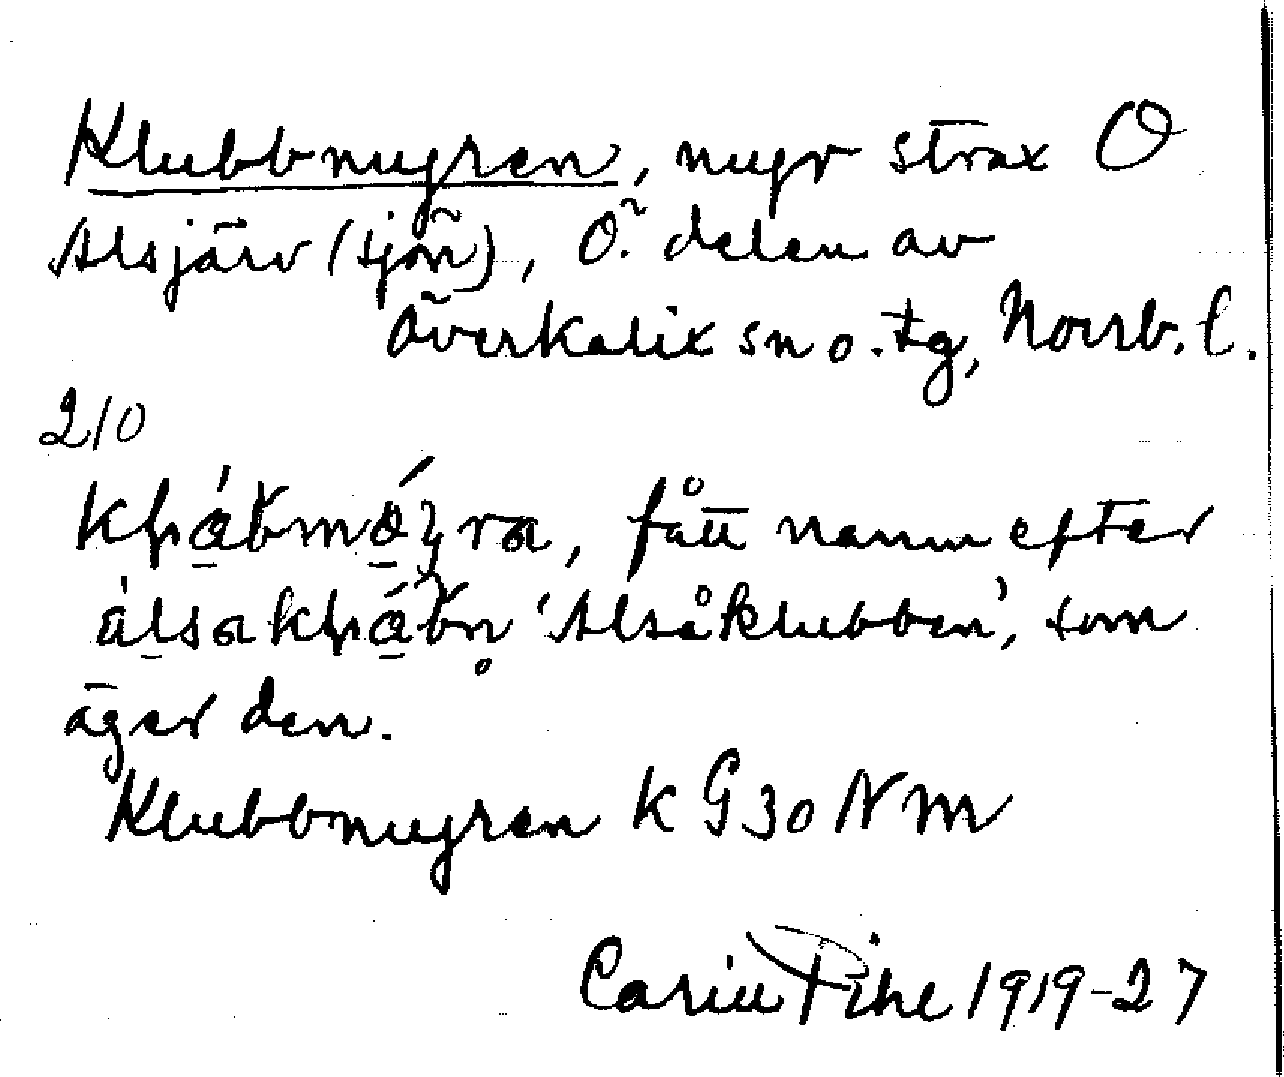 Klubbmyren, myr strax O
Alsjärv (sjön), Ö. delen av
Överkalix sn o. tg, Norrb. l.
210
fått namn efter
'Alsåklubben', som
äger den.
Klubbmyren k G30 NM
Carin Pihl 1919-27